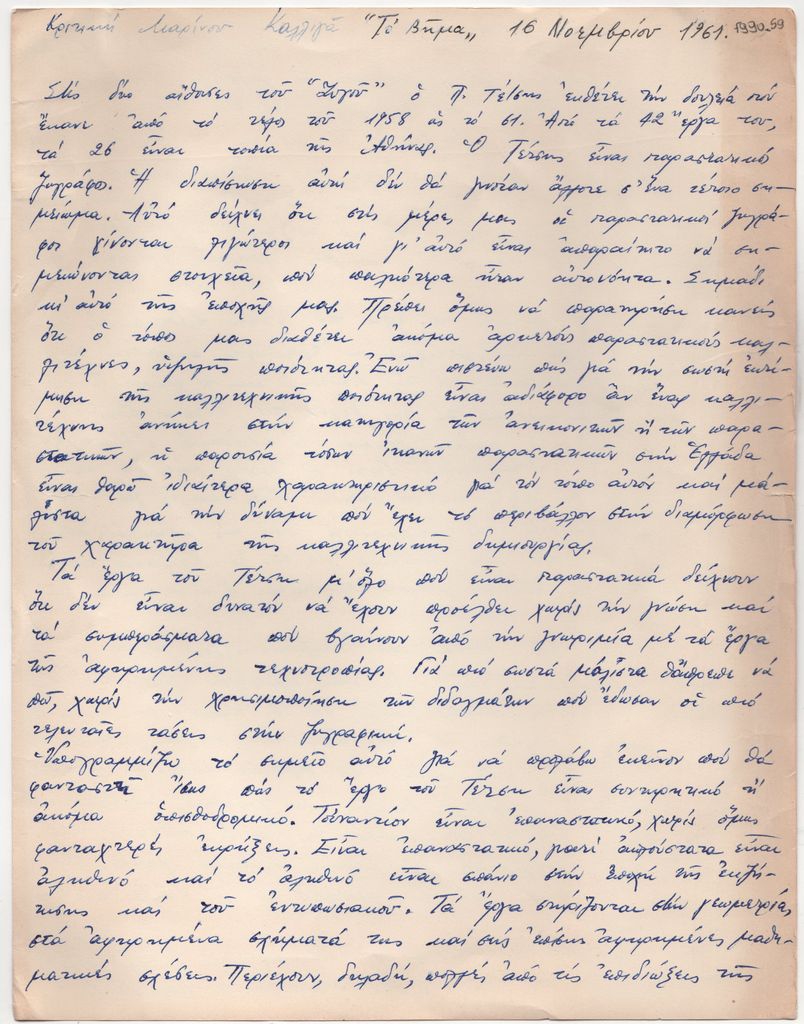 Κριτική Μαρίνου Καλλιγᾶ "Τὸ Βῆμα„ 16 Νοεμβρίου 1961. 1990.59
Στὶς δύο αἴθουσες τοῦ "Ζυγοῦ" ὁ Π. Τέτσης ἐκθέτει τὴν δουλειὰ ποὺ
ἔκανε ἀπὸ τὸ τέλος τοῦ 1958 ὡς τὸ 61. Ἀπὸ τὰ 42 ἔργα του,
τὰ 26 εἶναι τοπία τῆς Ἀθήνας. Ὁ Τέτσης εἶναι παραστατικὸς
ζωγράφος. Ἡ διαπίστωση αὐτὴ δὲν θὰ γινόταν ἄλλοτε σ' ἕνα τέτοιο ση-
μείωμα. Αὐτὸ δείχνει ὅτι στὶς μέρες μας οἱ παραστατικοὶ ζωγρά-
φοι γίνονται λιγώτεροι καὶ γι' αὐτὸ εἶναι ἀπαραίτητο νὰ ση-
μειώνονται στοιχεῖα, ποὺ παλιότερα ἦταν αὐτονόητα. Σημάδι
κι' αὐτὸ τῆς ἐποχῆς μας. Πρέπει ὅμως νὰ παρατηρήση κανεὶς
ὅτι ὁ τόπος μας διαθέτει ἀκόμα ἀρκετοὺς παραστατικοὺς καλ-
λιτέχνες, ὑψηλῆς ποιότητας. Ἐνῶ πιστεύω πὼς γιὰ τὴν σωστὴ ἐκτί-
μηση τῆς καλλιτεχνικῆς ποιότητας εἶναι ἀδιάφορο ἂν ἕνας καλλι-
τέχνης ἀνήκει στὴν κατηγορία τῶν ἀνεικονικῶν ἢ τῶν παρα-
στατικῶν, ἡ παρουσία τόσων ἱκανῶν παραστατικῶν στὴν Ἑλλάδα
εἶναι θαρῶ ἰδιαίτερα χαρακτηριστικὸ γιὰ τὸν τόπο αὐτὸν καὶ μά-
λιστα γιὰ τὴν δύναμη ποὺ ἔχει τὸ περιβάλλον στὴν διαμόρφωση
τοῦ χαρακτήρα τῆς καλλιτεχνικῆς δημιουργίας.
Τὰ ἔργα τοῦ Τέτση μ' ὅλο ποὺ εἶναι παραστατικὰ δείχνουν
ὅτι δὲν εἶναι δυνατὸν νὰ ἔχουν προέλθει χωρὶς τὴν γνώση καὶ
τὰ συμπεράσματα ποὺ βγαίνουν ἀπὸ τὴν γνωριμία μὲ τὰ ἔργα
τῆς ἀφηρημένης τεχνοτροπίας. Γιὰ πιὸ σωστὰ μάλιστα θἄπρεπε νὰ
πῶ, χωρὶς τὴν χρησιμοποίηση τῶν διδαγμάτων ποὺ ἔδωσαν οἱ πιὸ
τελευταῖες τάσεις στὴν ζωγραφική.
Ὑπογραμμίζω τὸ σημεῖο αὐτὸ γιὰ νὰ προλάβω ἐκεῖνον ποὺ θὰ
φανταστῆ ἴσως πὼς τὸ ἔργο τοῦ Τέτση εἶναι συντηρητικὸ ἢ
ἀκόμα ὀπισθοδρομικό. Τοὐναντίον εἶναι ἐπαναστατικό, χωρὶς ὅμως
φανταχτερὲς ἐκρήξεις. Εἶναι ἐπαναστατικό, γιατὶ ἁπλούστατα εἶναι
ἀληθινὸ καὶ τὸ ἀληθινὸ εἶναι σπάνιο στὴν ἐποχὴ τῆς ἐκζή-
τησης καὶ τοῦ ἐντυπωσιακοῦ. Τὰ ἔργα στηρίζονται στὴν γεωμετρία,
στὰ ἀφηρημένα σχήματά της καὶ στὶς ἐπίσης ἀφηρημένες μαθη-
ματικὲς σχέσεις. Περιέχουν, δηλαδή, πολλὲς ἀπὸ τὶς ἐπιδιώξεις τῆς